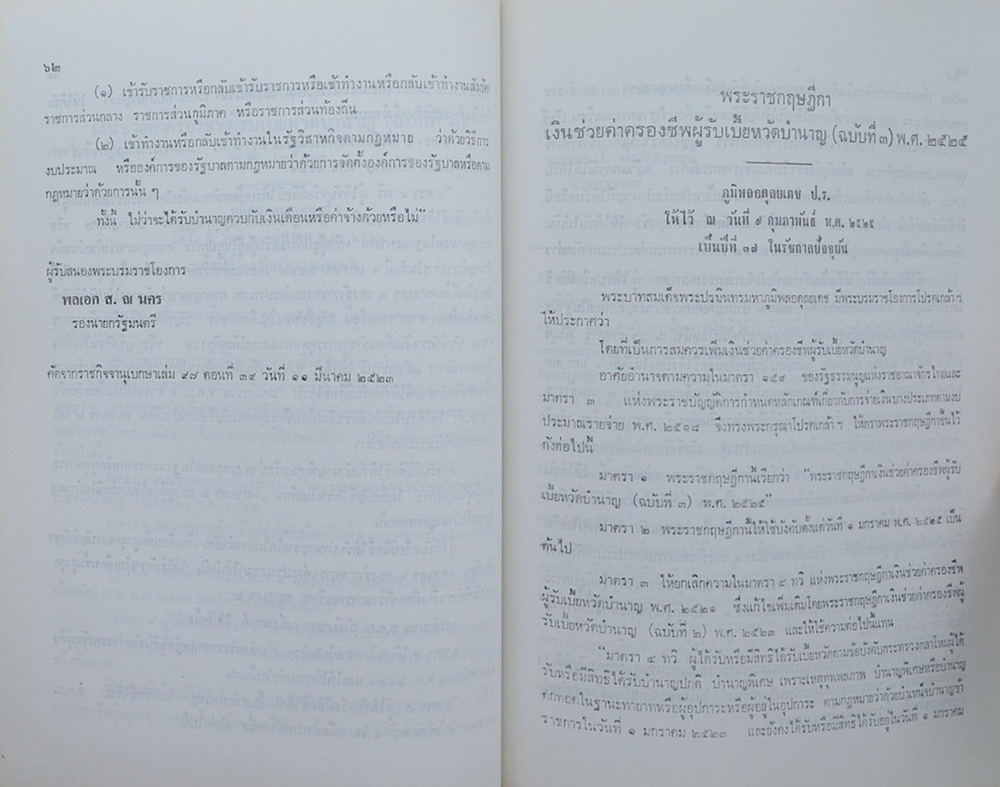 ๖๒
(๑) เข้ารับราชการหรือกลับเข้ารับราชการหรือเข้าทำงานหรือกลับเข้าทำงานสังกัด
ราชการส่วนกลาง ราชการส่วนภูมิภาค หรือราชการส่วนท้องถิ่น
(๒) เข้าทำงานหรือกลับเข้าทำงานในรัฐวิสาหกิจตามกฎหมาย ว่าด้วยวิธีการ
งบประมาณ หรือองค์การของรัฐบาลตามกฎหมายว่าด้วยการจัดตั้งองค์การของรัฐบาลหรือตาม
กฎหมายว่าด้วยการนั้น ๆ
ทั้งนี้ ไม่ว่าจะได้รับบำนาญควบกับเงินเดือนหรือค่าจ้างด้วยหรือไม่”
ผู้รับสนองพระบรมราชโองการ
พลเอก ส. ณ นคร
รองนายกรัฐมนตรี
คัดจากราชกิจจานุเบกษาเล่ม ๙๗ ตอนที่ ๓๙ วันที่ ๑๑ มีนาคม ๒๕๒๓
พระราชกฤษฎีกา
เงินช่วยค่าครองชีพผู้รับเบี้ยหวัดบำนาญ (ฉบับที่ ๓) พ.ศ. ๒๕๒๕
ภูมิพลอดุลยเดช ป.ร.
ให้ไว้ ณ วันที่ ๙ กุมภาพันธ์ พ.ศ. ๒๕๒๕
เป็นปีที่ ๓๗ ในรัชกาลปัจจุบัน
พระบาทสมเด็จพระปรมินทรมหาภูมิพลอดุลยเดช มีพระบรมราชโองการโปรดเกล้าฯ
ให้ประกาศว่า
โดยที่เป็นการสมควรเพิ่มเงินช่วยค่าครองชีพผู้รับเบี้ยหวัดบำนาญ
อาศัยอำนาจตามความในมาตรา ๑๕๙ ของรัฐธรรมนูญแห่งราชอาณาจักรไทยและ
มาตรา ๓ แห่งพระราชบัญญัติการกำหนดหลักเกณฑ์เกี่ยวกับการจ่ายเงินบางประเภทตามงบ
ประมาณรายจ่าย พ.ศ. ๒๕๑๘ จึงทรงพระกรุณาโปรดเกล้า ฯ ให้ตราพระราชกฤษฎีกาขึ้นไว้
ดังต่อไปนี้
มาตรา ๑ พระราชกฤษฎีกานี้เรียกว่า “พระราชกฤษฎีกาเงินช่วยค่าครองชีพผู้รับ
เบี้ยหวัดบำนาญ (ฉบับที่ ๓) พ.ศ. ๒๕๒๕”
มาตรา ๒ พระราชกฤษฎีกานี้ให้ใช้บังคับตั้งแต่วันที่ ๑ มกราคม พ.ศ. ๒๕๒๕ เป็น
ต้นไป
มาตรา ๓ ให้ยกเลิกความในมาตรา ๔ ทวิ แห่งพระราชกฤษฎีกาเงินช่วยค่าครองชีพ
ผู้รับเบี้ยหวัดบำนาญ พ.ศ. ๒๕๒๑ ซึ่งแก้ไขเพิ่มเติมโดยพระราชกฤษฎีกาเงินช่วยค่าครองชีพผู้
รับเบี้ยหวัดบำนาญ (ฉบับที่ ๒) พ.ศ. ๒๕๒๓ และให้ใช้ความต่อไปนี้แทน
“มาตรา ๔ ทวิ ผู้ได้รับหรือมีสิทธิได้รับเบี้ยหวัดตามข้อบังคับกระทรวงกลาโหมผู้ได้
รับหรือมีสิทธิได้รับบำนาญปกติ บำนาญพิเศษ เพราะเหตุทุพพลภาพ บำนาญพิเศษหรือบำนาญ
ตกทอดในฐานะทายาทหรือผู้อุปการะหรือผู้อยู่ในอุปการะ ตามกฎหมายว่าด้วยบำเหน็จบำนาญข้า
ราชการในวันที่ ๑ มกราคม ๒๕๒๓ และยังคงได้รับหรือมีสิทธิได้รับอยู่ในวันที่ ๑ มกราคม